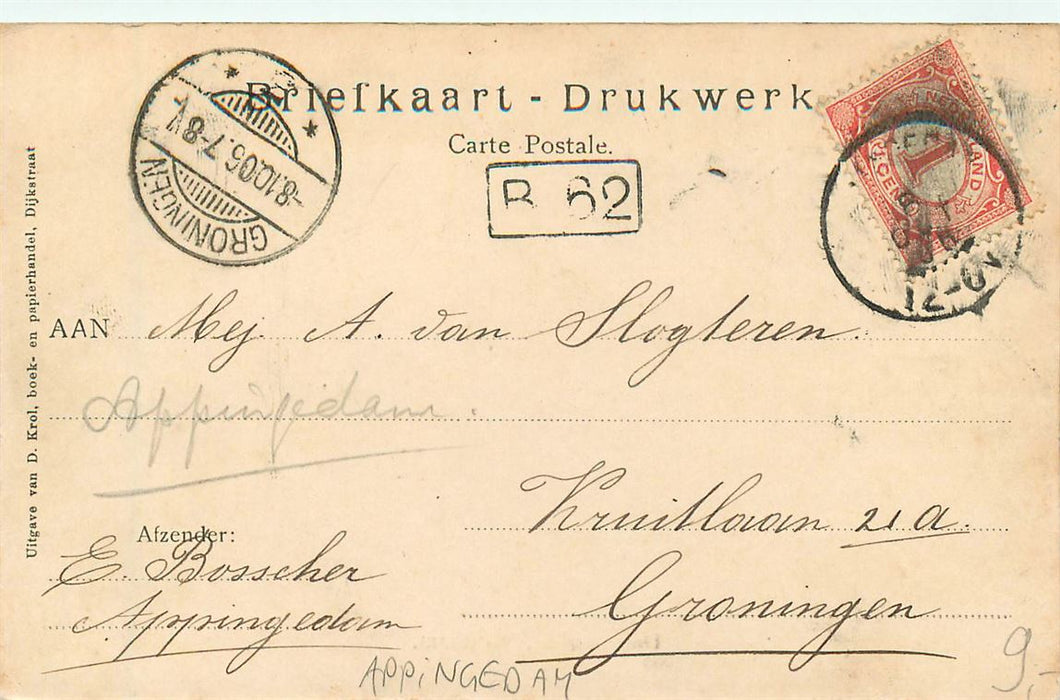 Briefkaart - Drukwerk
Carte Postale.
B 62
GRONINGEN
-8.10.06.7-8V
1
12-0N
Uitgave van D. Krol, boek- en papierhandel, Dijkstraat
AAN Mej. A. van Slogteren.
Appingedam.
Kruitlaan 21a.
Groningen
Afzender:
E. Bosscher
Appingedam
APPiNGEDAM
9,-